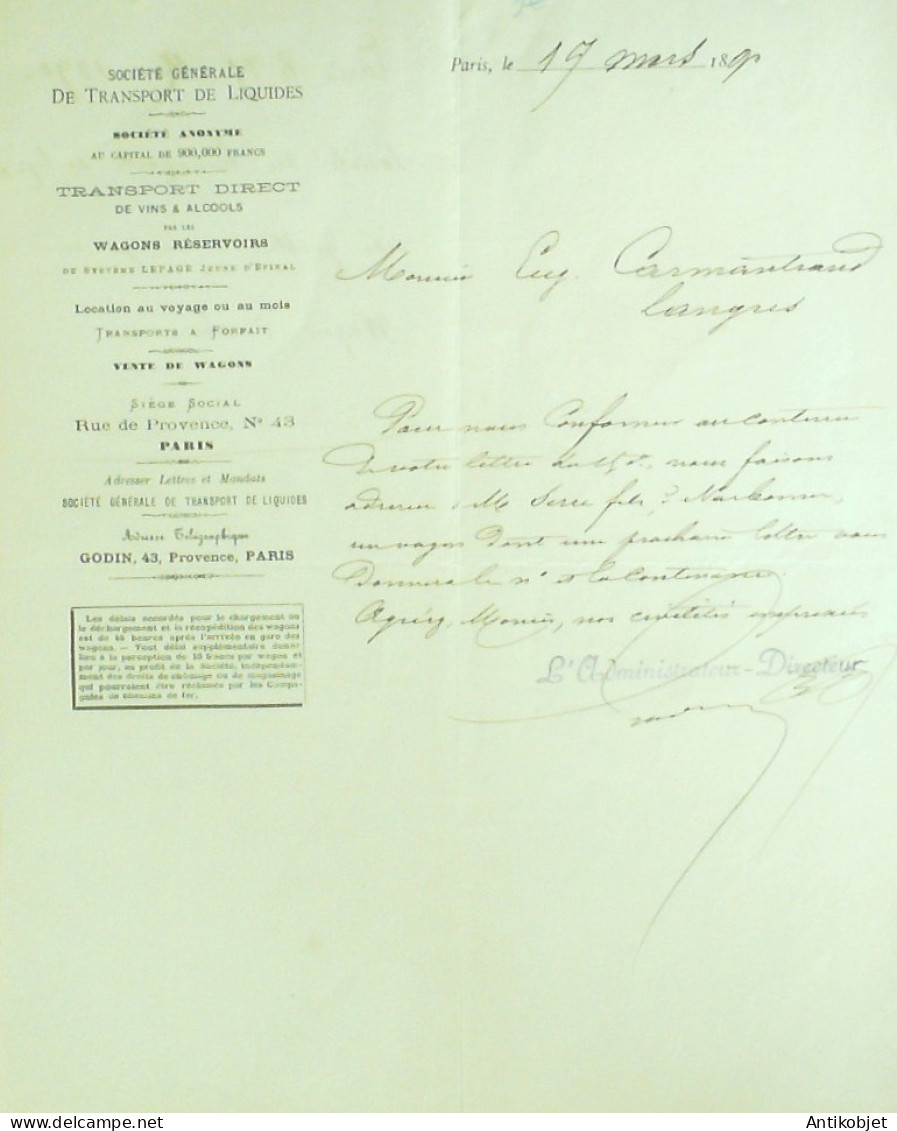 SOCIÉTÉ GÉNÉRALE
DE TRANSPORT DE LIQUIDES
SOCIÉTÉ ANONYME
AU CAPITAL DE 900,000 FRANCS
TRANSPORT DIRECT
DE VINS & ALCOOLS
PAR LES
WAGONS RÉSERVOIRS
DU SYSTÈME LEPAGE JEUNE D'EPINAL
Location au voyage ou au mois
TRANSPORTS A FORFAIT
VENTE DE WAGONS
SIÈGE SOCIAL
Rue de Provence, Nº 43
PARIS
Adresser Lettres et Mandats
SOCIÉTÉ GÉNÉRALE DE TRANSPORT DE LIQUIDES
Adresse Télégraphique
GODIN, 43, Provence, PARIS
Les délais accordés pour le chargement ou
le déchargement et la réexpédition des wagons
est de 48 heures après l'arrivée en gare des
wagons. — Tout délai supplémentaire donne
lieu à la perception de 10 francs par wagon et
par jour, au profit de la Société, indépendam-
ment des droits de chômage ou de magasinage
qui pourraient être réclamés par les Compa-
gnies de chemins de fer.
Paris, le 17 mars 1890
Monsieur Eug. Carmantrand
Langres
Pour nous conformer au contenu
de votre lettre du 15 ct, nous faisons
adresser à M Serre fils, à Narbonne,
un wagon dont une prochaine lettre vous
donnera le nº et la contenance.
Agréez, Monsieur, nos civilités empressées
L'Administrateur-Directeur
Antikobjet